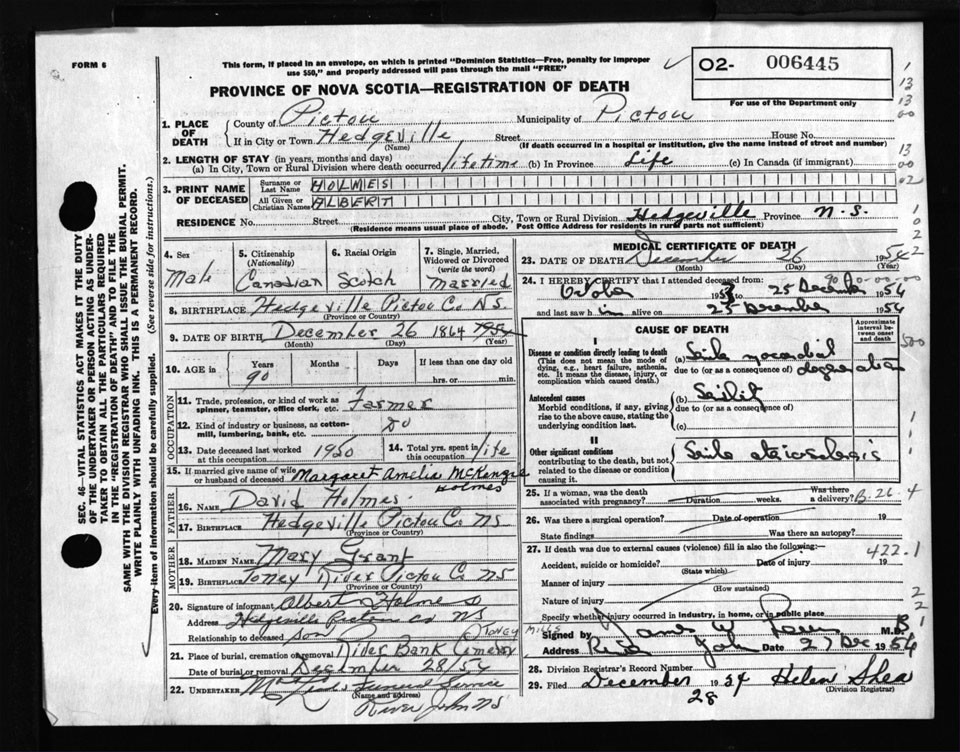 FORM 6
This form, if placed in an envelope, on which is printed "Dominion Statistics—Free, penalty for improper
use $50," and properly addressed will pass through the mail "FREE"
O2- 006445
For use of the Department only
PROVINCE OF NOVA SCOTIA—REGISTRATION OF DEATH
1. PLACE OF DEATH
County of Pictou Municipality of Pictou
If in City or Town Hedgeville Street House No.
(Name) (If death occurred in a hospital or institution, give the name instead of street and number)
2. LENGTH OF STAY (in years, months and days)
(a) In City, Town or Rural Division where death occurred lifetime (b) In Province Life (c) In Canada (if immigrant)
3. PRINT NAME OF DECEASED
Surname or Last Name HOLMES
All Given or Christian Names ALBERT
RESIDENCE No. Street City, Town or Rural Division Hedgeville Province N.S.
(Residence means usual place of abode. Post Office Address for residents in rural parts not sufficient)
4. Sex Male
5. Citizenship (Nationality) Canadian
6. Racial Origin Scotch
7. Single, Married, Widowed or Divorced (write the word) Married
8. BIRTHPLACE Hedgeville Pictou Co NS
(Province or Country)
9. DATE OF BIRTH December 26 1864 1954
(Month) (Day) (Year)
10. AGE Years Months Days If less than one day old
90 hrs. or min.
OCCUPATION
11. Trade, profession, or kind of work as spinner, teamster, office clerk, etc. Farmer
12. Kind of industry or business, as cotton-mill, lumbering, bank, etc. do
13. Date deceased last worked at this occupation 1950
14. Total yrs. spent in this occupation life
15. If married give name of wife or husband of deceased Margaret Amelia McKenzie Holmes
FATHER
16. NAME David Holmes
17. BIRTHPLACE Hedgeville Pictou Co. NS
MOTHER
18. MAIDEN NAME Mary Grant
19. BIRTHPLACE Toney River Pictou Co NS
(Province or Country)
20. Signature of informant Albert Holmes
Address Hedgeville Pictou Co NS
Relationship to deceased son
21. Place of burial, cremation or removal Toney River Bank Cemetery
Date of burial or removal December 28/54
22. UNDERTAKER Funeral Service
(Name and address)
River John NS
MEDICAL CERTIFICATE OF DEATH
23. DATE OF DEATH December 26 1954
(Month) (Day) (Year)
24. I HEREBY CERTIFY that I attended deceased from:
October 1953 to 25 December 1954
and last saw him alive on 25 December 1954
CAUSE OF DEATH
Approximate interval between onset and death
I
Disease or condition directly leading to death
(This does not mean the mode of dying, e.g., heart failure, asthenia, etc. It means the disease, injury, or complication which caused death.
(a) Senile myocardial
due to (or as a consequence of) degeneration
Antecedent causes
Morbid conditions, if any, giving rise to the above cause, stating the underlying condition last.
(b) Senility
due to (or as a consequence of)
(c)
II
Other significant conditions
contributing to the death, but not related to the disease or condition causing it.
Senile
25. If a woman, was the death associated with pregnancy? Duration weeks. Was there a delivery?
26. Was there a surgical operation? Date of operation 19
State findings Was there an autopsy?
27. If death was due to external causes (violence) fill in also the following:—
422.1
Accident, suicide or homicide? Date of injury 19
(State which)
Manner of injury
(How sustained)
Nature of injury
Specify whether injury occurred in industry, in home, or in public place
Signed by M.D.
Address River John Date 27 Dec 1954
28. Division Registrar's Record Number
29. Filed December 28 1954 Helen Shea
(Division Registrar)
SEC. 46—VITAL STATISTICS ACT MAKES IT THE DUTY
OF THE UNDERTAKER OR PERSON ACTING AS UNDER-
TAKER TO OBTAIN ALL THE PARTICULARS REQUIRED
IN THE "REGISTRATION OF DEATH" AND TO FILE THE
SAME WITH THE DIVISION REGISTRAR WHO SHALL ISSUE THE BURIAL PERMIT.
WRITE PLAINLY WITH UNFADING INK. THIS IS A PERMANENT RECORD.
Every item of information should be carefully supplied. (See reverse side for instructions.)